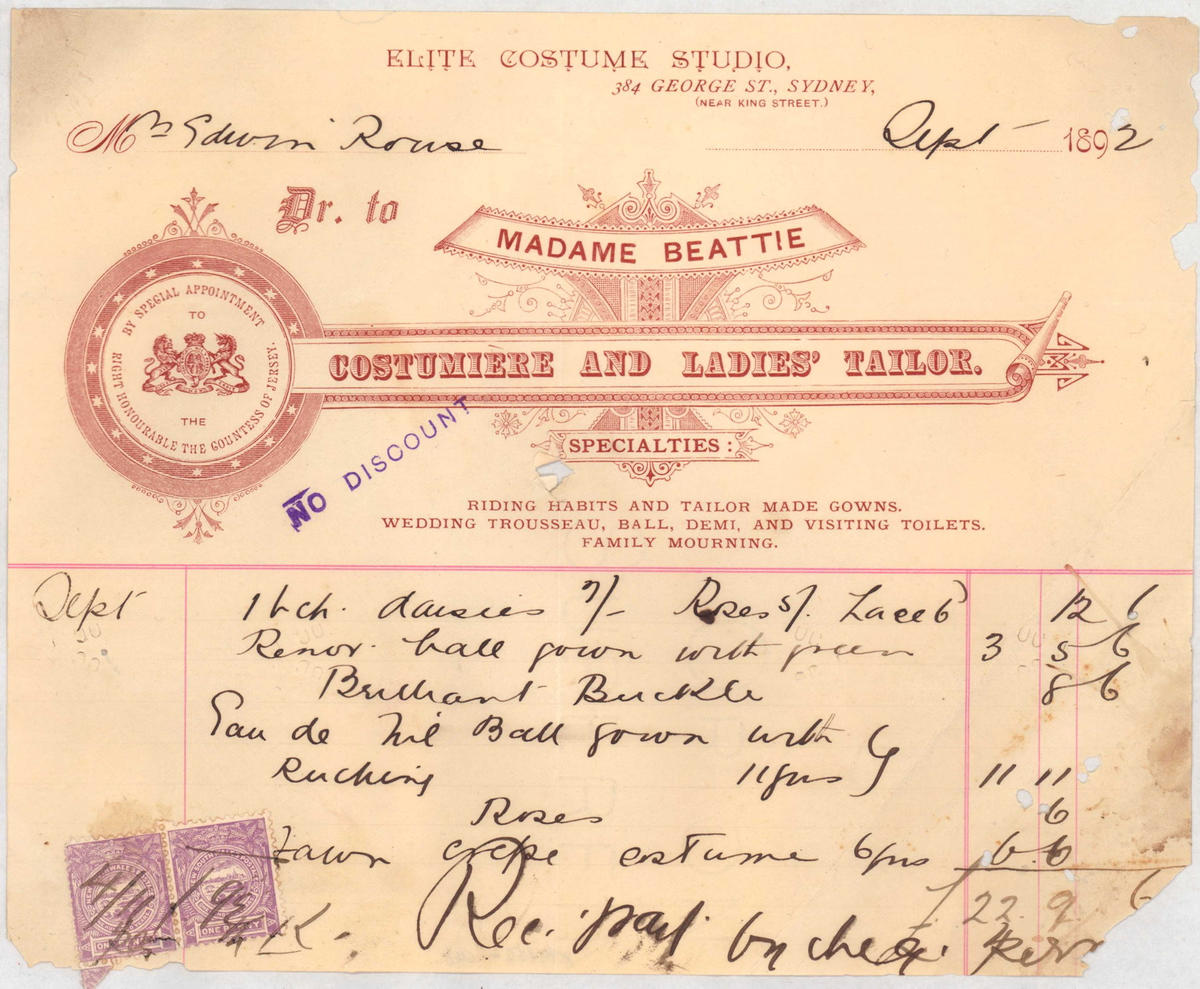 ELITE COSTUME STUDIO,
384 GEORGE ST., SYDNEY,
(NEAR KING STREET.)
Mrs Edwin Rouse Sept 1892
Dr. to
MADAME BEATTIE
BY SPECIAL APPOINTMENT
TO
THE
RIGHT HONOURABLE THE COUNTESS OF JERSEY.
COSTUMIERE AND LADIES' TAILOR.
NO DISCOUNT
SPECIALTIES:
RIDING HABITS AND TAILOR MADE GOWNS.
WEDDING TROUSSEAU, BALL, DEMI, AND VISITING TOILETS.
FAMILY MOURNING.
Sept 1 bch. daisies 7/- Roses 5/. Lace 6 12 6
Renov. ball gown with green 3 5 6
Brilliant Buckle 8 6
Eau de Nil Ball gown with
Ruching 11 gns 11 11
Roses 6
Fawn crepe costume 6 gns 6 6
£ 22 9 6
Rec. paid by cheq.
ONE PENNY
4/10/92